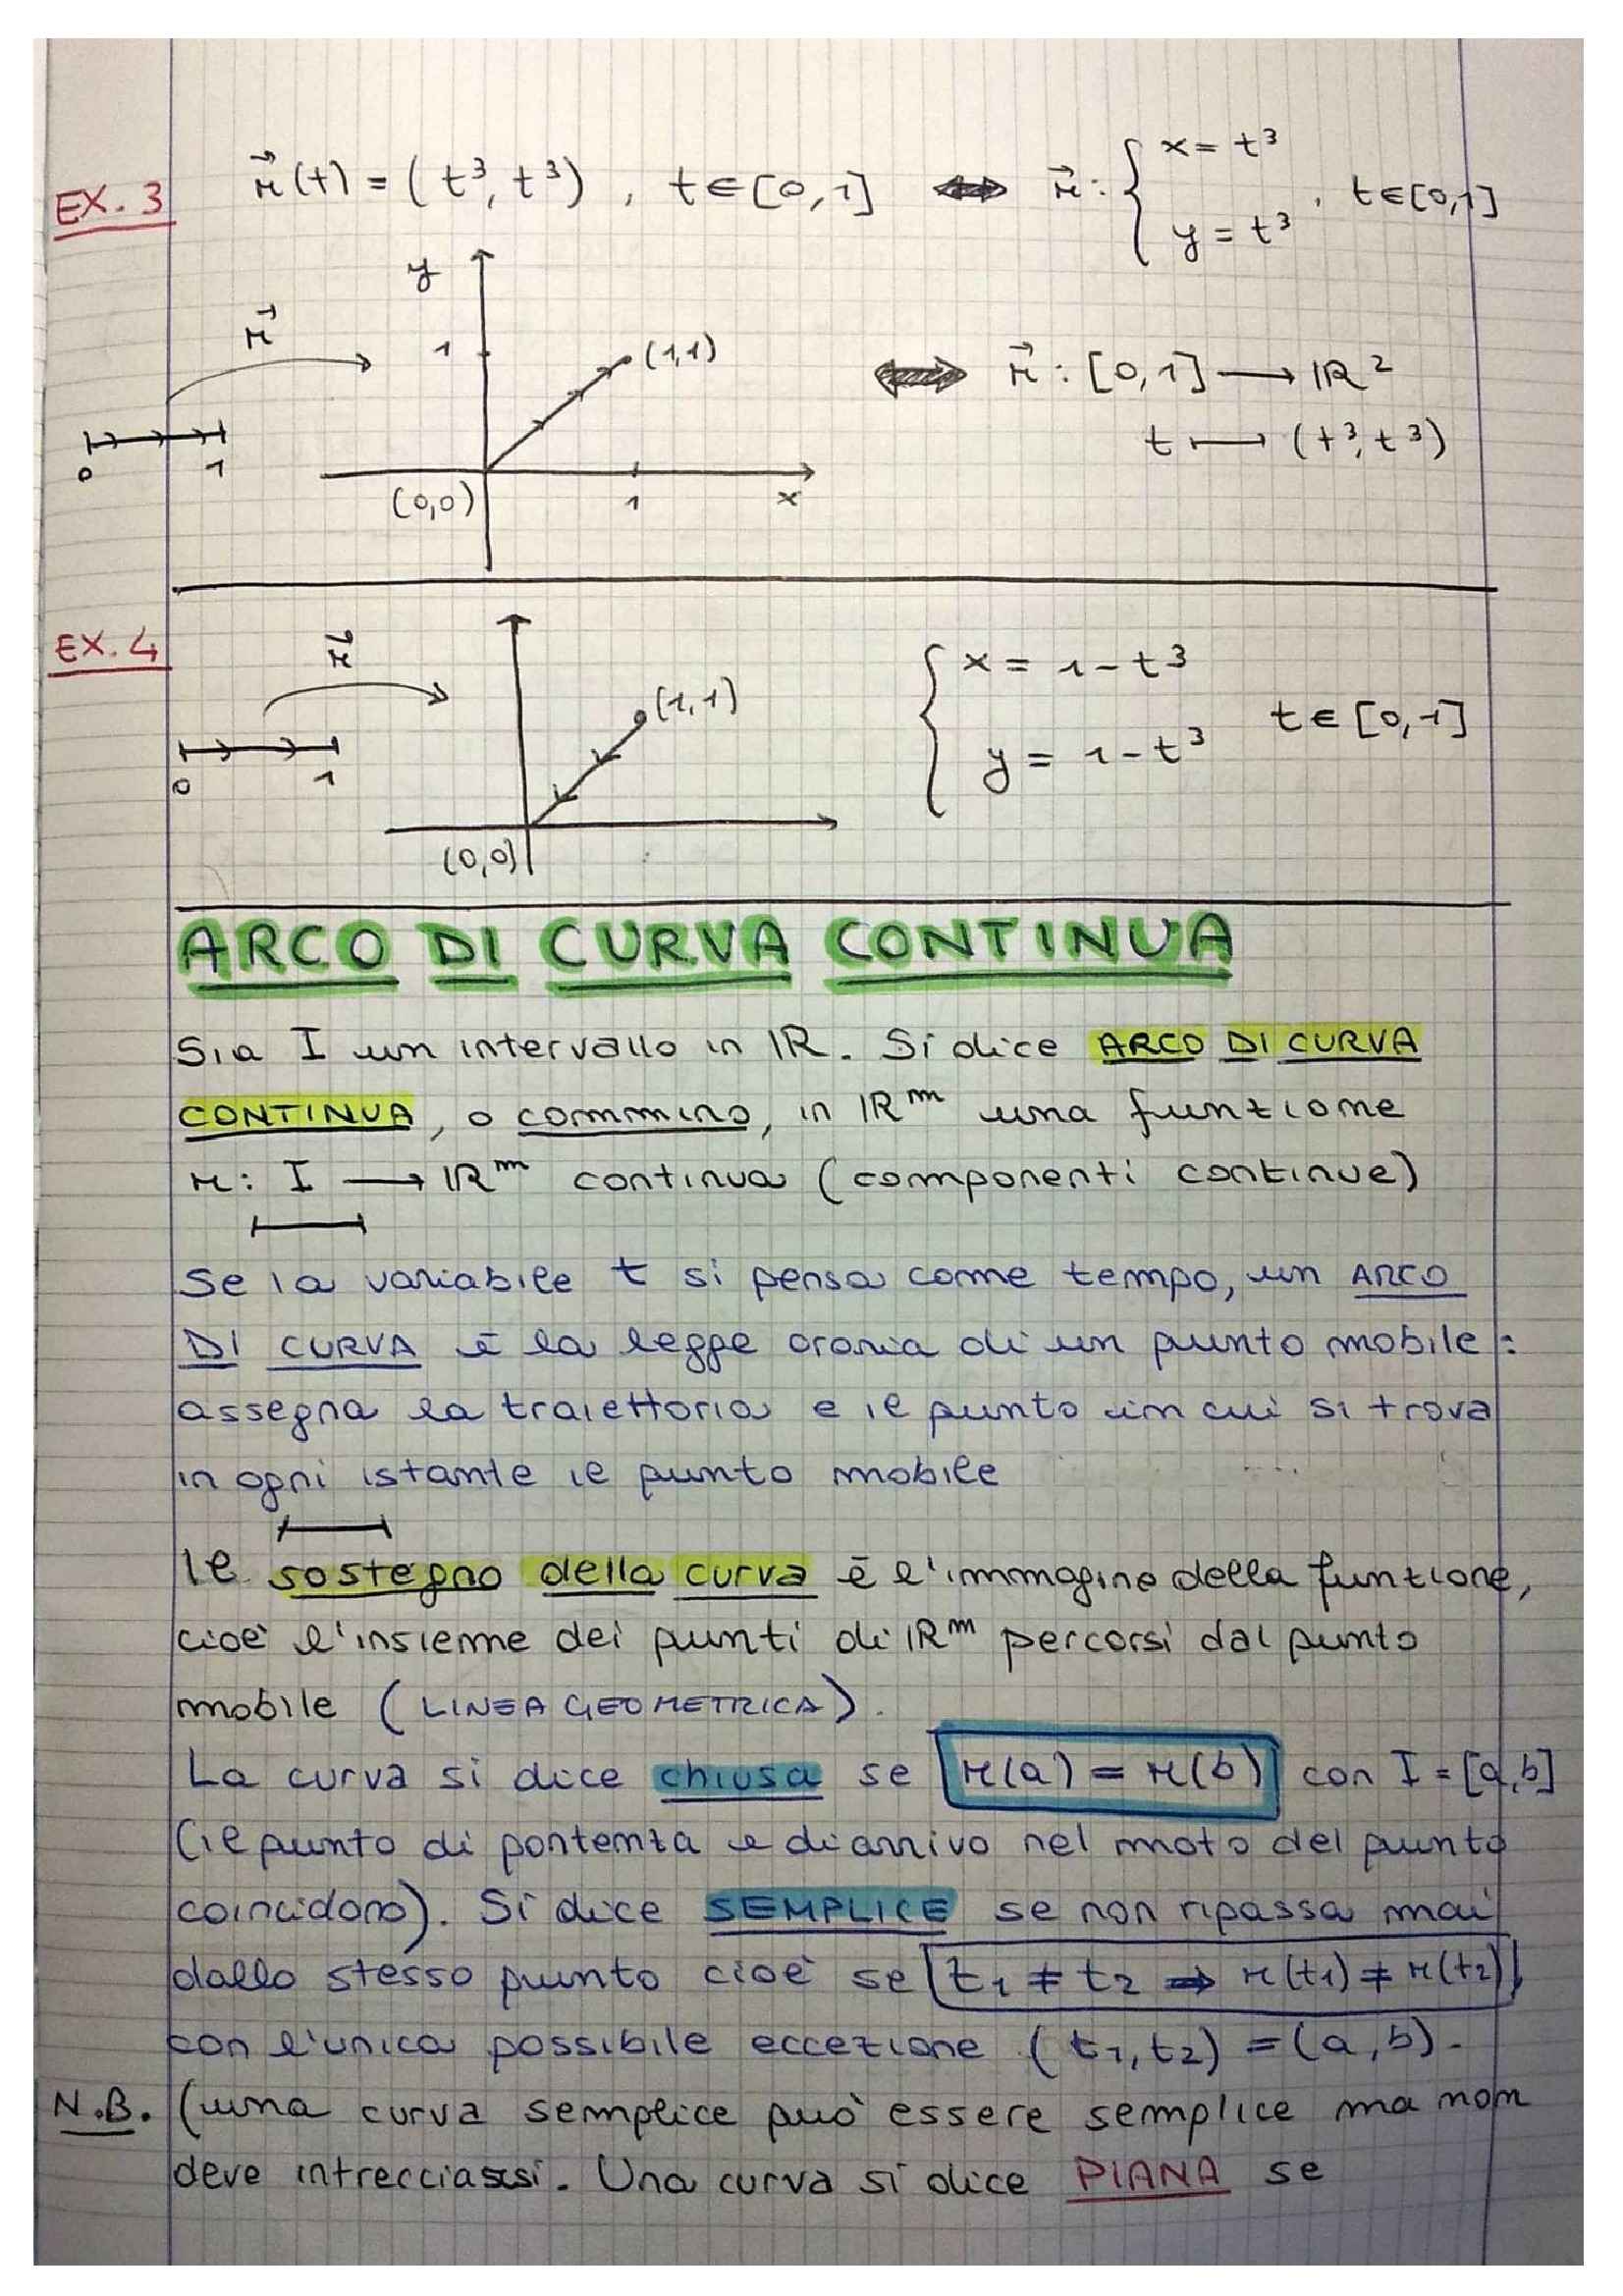 EX. 3
r⃗(t) = (t³, t³), t∈[0,1] ⟺ r⃗: { x = t³ , y = t³ , t∈[0,1]
y
r⃗
1
(1,1)
⟺ r⃗: [0,1] ⟶ ℝ²
t ⟼ (t³, t³)
0 1
(0,0) 1 x
EX. 4
r⃗
(1,1)
{ x = 1-t³
y = 1-t³
t∈[0,1]
0 1
(0,0)
ARCO DI CURVA CONTINUA
Sia I un intervallo in ℝ. Si dice ARCO DI CURVA
CONTINUA, o cammino, in ℝᵐ una funzione
r: I ⟶ ℝᵐ continua (componenti continue)
Se la variabile t si pensa come tempo, un ARCO
DI CURVA è la legge oraria di un punto mobile:
assegna la traiettoria e il punto in cui si trova
in ogni istante il punto mobile
Il sostegno della curva è l'immagine della funzione,
cioè l'insieme dei punti di ℝᵐ percorsi dal punto
mobile (LINEA GEOMETRICA).
La curva si dice chiusa se r(a) = r(b) con I = [a,b]
(il punto di partenza e di arrivo nel moto del punto
coincidono). Si dice SEMPLICE se non ripassa mai
dallo stesso punto cioè se t₁ ≠ t₂ ⇒ r(t₁) ≠ r(t₂)
con l'unica possibile eccezione (t₁, t₂) = (a, b).
N.B. (una curva semplice può essere semplice ma non
deve intrecciarsi. Una curva si dice PIANA se